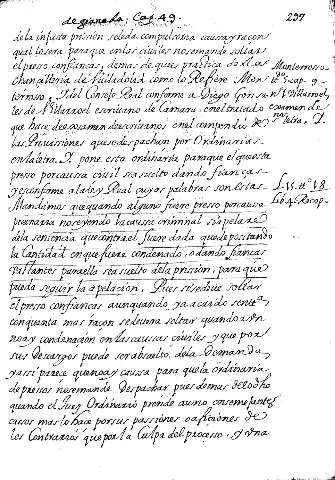 de gianaba. Cap. 49.
237
de la injusta prision se le da compulsoria causa y razon
qual lo sera para que en las civiles no se mande soltar
el preso con fianças, demas de que es practica de la
chancilleria de Valladolid como lo Refiere Mon
terroso, y del Consejo Real conforme a Diego Gonsa
les de Villarroel escrivano de Camara en el tratado
que hace de examen de escrivanos en el compendio de
las Provissiones que se despachan por Ordinarias
en la letra. I. pone esta ordinaria para que el que esta
preso por causa civil sea suelto dando fianças
y es conforme a la ley Real cuyas palabras son estas
Mandamos que quando alguno fuere preso por causa
pecuniaria no seyendo la causa criminal si apelare
de la sentencia que contra el fuere dada que depositando
la Cantidad en que fuere condenado, o dando fiancas
bastantes para ella sea suelto de la prision, para que
pueda seguir la apelacion. Pues si se deve soltar
el preso con fianças aunque aya dado sentẽ
cia, con quanta mas razon se devera soltar quando aun
no ay condenacion en las causas civiles y que por
sus descargos puede ser absuelto, de la Demanda
y assi parece que no ay causa para que la ordinaria
de presos no se mande despachar pues demas de lo dho
quando el Juez Ordinario prende a uno en semejantes
casos mas lo hace por sus passiones o aficiones de
los Contrarios que por la Culpa del processo. y una
Monterroso
tt.º 5. cap. 9
Villarroel,
examen de
letra, I.
L. 15. tt.º 18
Lib. 4. Recop.